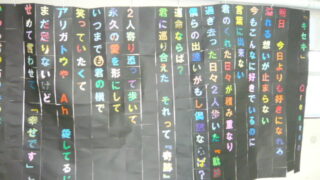 「キセキ」 GReeeeN
明日、今日よりも好きになれる
溢れる想いが止まらない
今もこんなに好きでいるのに
言葉に出来ない
君のくれた日々が積み重なり
過ぎ去った日々2人歩いた『軌跡』
僕らの出逢いがもし偶然ならば?
運命ならば?
君に巡り合えた それって『奇跡』
2人寄り添って歩いて
永久の愛を形にして
いつまでも君の横で
笑っていたくて
アリガトウや Ah 愛してるじ
まだ足りないけど
せめて言わせて 「幸せです」と